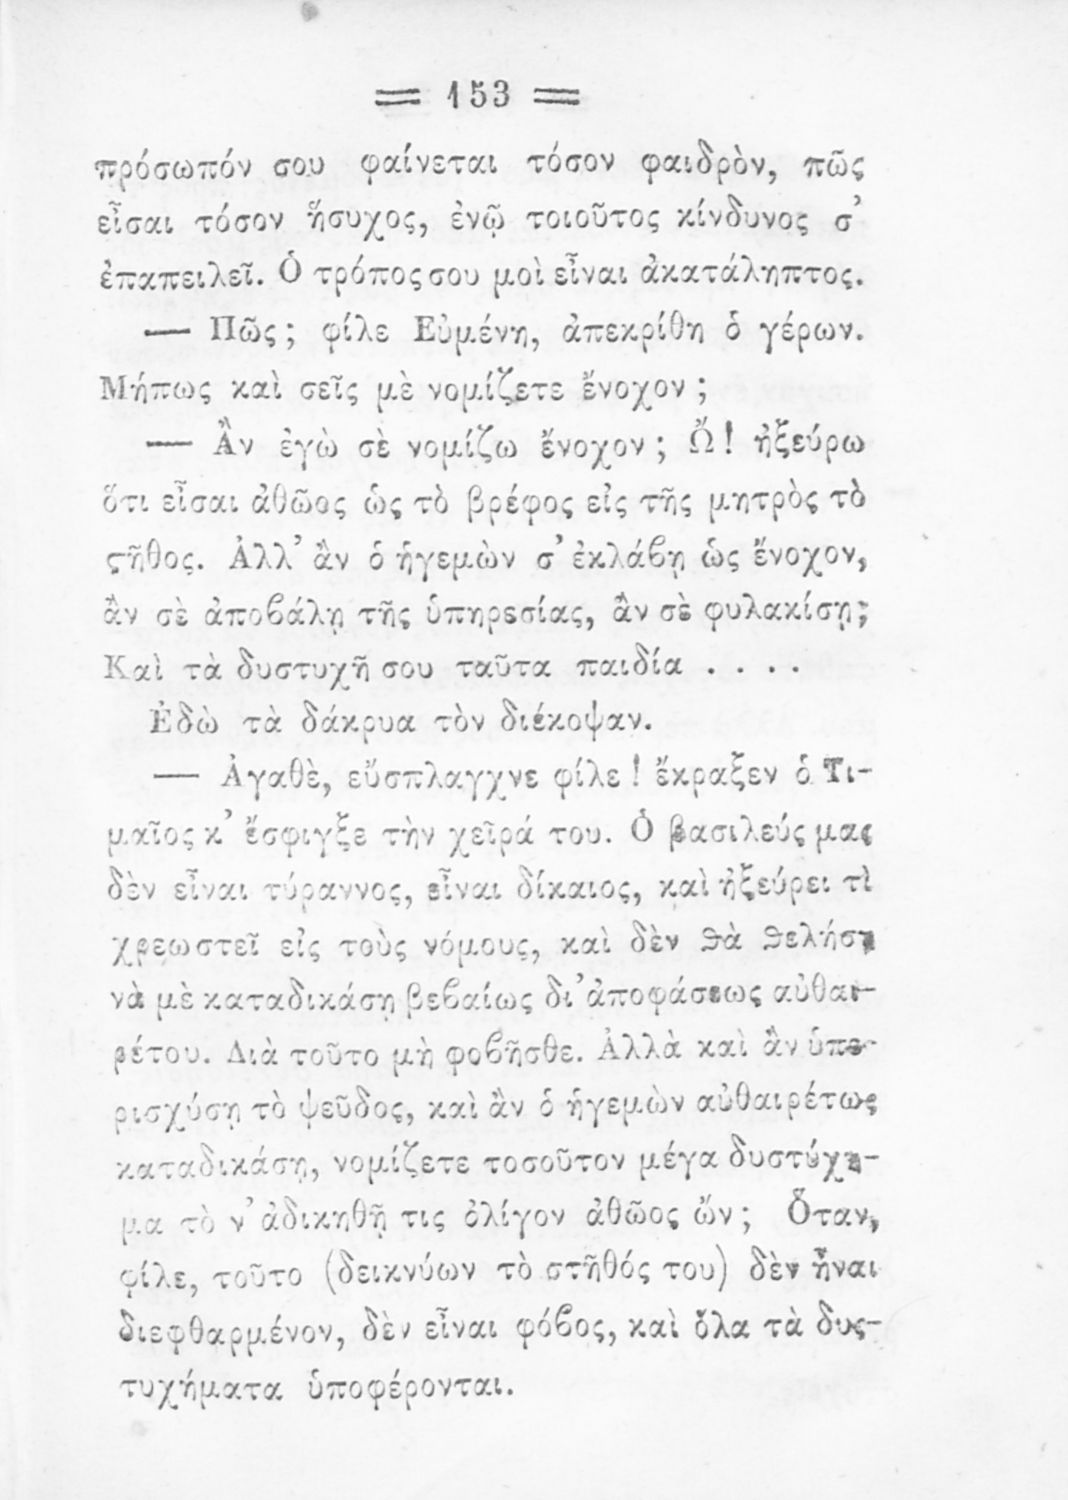 = 153 =
πρόσωπόν σου φαίνεται τόσον φαιδρὸν, πῶς
εἶσαι τόσον ἥσυχος, ἐνῷ τοιοῦτος κίνδυνος σ’
ἐπαπειλεῖ. Ὁ τρόπος σου μοὶ εἶναι ἀκατάληπτος.
— Πῶς ; φίλε Εὐμένη, ἀπεκρίθη ὁ γέρων.
Μήπως καὶ σεῖς μὲ νομίζετε ἔνοχον ;
— Ἂν ἐγὼ σὲ νομίζω ἔνοχον ; Ὤ! ἠξεύρω
ὅτι εἶσαι ἀθῶος ὡς τὸ βρέφος εἰς τῆς μητρὸς τὸ
ϛῆθος. Ἀλλ’ ἂν ὁ ἡγεμὼν σ’ ἐκλάϐῃ ὡς ἔνοχον,
ἂν σὲ ἀποϐάλῃ τῆς ὑπηρεσίας, ἂν σὲ φυλακίσῃ;
Καὶ τὰ δυστυχῆ σου ταῦτα παιδία . . . .
Ἐδὼ τὰ δάκρυα τὸν διέκοψαν.
— Ἀγαθὲ, εὔσπλαγχνε φίλε ! ἔκραξεν ὁ Τι-
μαῖος κ’ ἔσφιγξε τὴν χεῖρά του. Ὁ βασιλεύς μας
δὲν εἶναι τύραννος, εἶναι δίκαιος, καὶ ἠξεύρει τὶ
χρεωστεῖ εἰς τοὺς νόμους, καὶ δὲν ϑὰ ϑελήσῃ
νὰ μὲ καταδικάσῃ βεϐαίως δι’ ἀποφάσεως αὐθαι-
ρέτου. Διὰ τοῦτο μὴ φοϐῆσθε. Ἀλλὰ καὶ ἂν ὑπε-
ρισχύσῃ τὸ ψεῦδος, καὶ ἂν ὁ ἡγεμὼν αὐθαιρέτως
καταδικάσῃ, νομίζετε τοσοῦτον μέγα δυστύχη-
μα τὸ ν’ ἀδικηθῇ τις ὀλίγον ἀθῶος ὤν ; Ὅταν,
φίλε, τοῦτο (δεικνύων τὸ στῆθός του) δὲν ἦναι
διεφθαρμένον, δὲν εἶναι φόϐος, καὶ ὅλα τὰ δυς-
τυχήματα ὑποφέρονται.